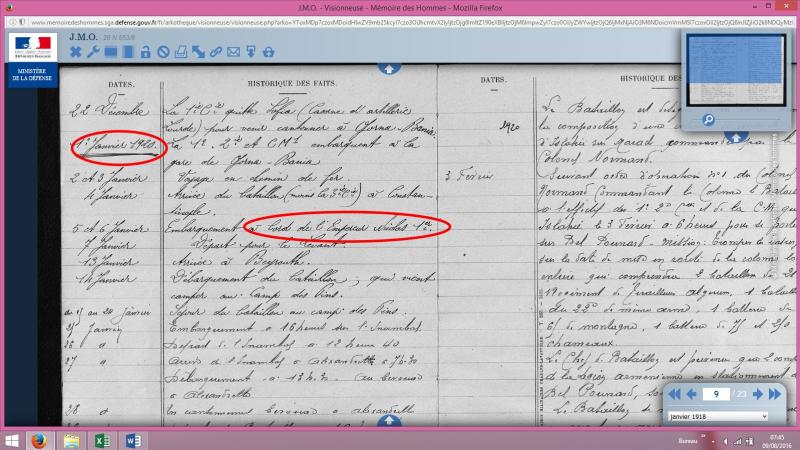 J.M.O. - Visionneuse - Mémoire des Hommes - Mozilla Firefox
www.memoiredeshommes.sga.defense.gouv.fr/fr/arkotheque/visionneuse/visionneuse.php?arko=
J.M.O. 26 N 653/8
MINISTÈRE
DE LA DÉFENSE
DATES.
HISTORIQUE DES FAITS.
22 Décembre
La 1ère Cie quitte Sofia (Caserne d'artillerie
lourde) pour venir cantonner à Gorna-Bania.
1er Janvier 1920.
La 1e, 2e et CM1 embarquent à la
gare de Gorna-Bania
2 et 3 Janvier
Voyage en chemin de fer
4 Janvier
Arrivée du Bataillon (moins la 3e Cie) à Constan-
tinople.
5 et 6 Janvier
Embarquement à bord de l'Empereur Nicolas 1er.
7 Janvier
Départ pour le Levant.
13 Janvier
Arrivée à Beyrouth.
14 Janvier
Débarquement du Bataillon, qui vient
camper au Camp des Pins.
au 24 Janvier
Séjour du Bataillon au camp des Pins.
25 Janvier
Embarquement à 16 heures sur l'
26 d
Départ de l' à 12 heures 40
27 d
à Alexandrette à 7h30
Débarquement à 13h30.
à Alexandrette
28 d
En cantonnement à Alexandrette
DATES.
HISTORIQUE DES FAITS.
1920
3 Février
Le Bataillon est
la composition d'une
commandée par le
Colonel Normand.
Suivant ordre d'opération n°1 du Colonel
Normand Commandant la Colonne le Bataillon
à l'effectif des 1e 2e Cies et de la C.M.
le 3 Février à 6 heures pour se porter
sur Bel Pounard - Mission:
sur la date de mise en route de la colonne
entière qui comprendra 2 Bataillons du 21e
Régiment de Tirailleurs algériens, 1 bataillon
du 22e de même arme, 1 batterie de
65 de montagne, 1 batterie de 75 et 250
chameaux.
Le Chef de Bataillon est prévenu que 2 comp
de la légion arménienne en stationnement à
Bel Pounard,
Le Bataillon
9 / 23
janvier 1918
Bureau
07:45
09/08/2016